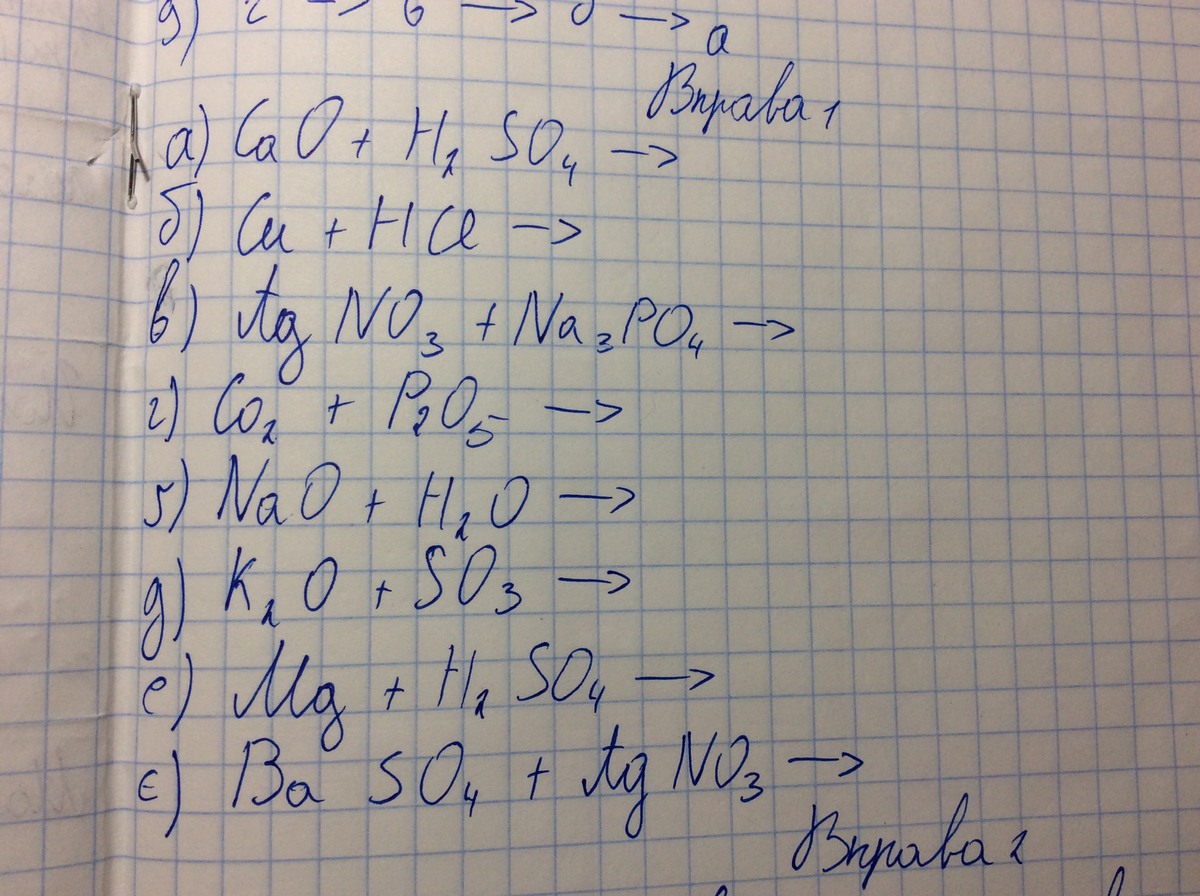 г → в → б → а
Вправа 1
а) CaO + H₂SO₄ →
б) Cu + HCl →
в) AgNO₃ + Na₃PO₄ →
г) Co₂ + P₂O₅ →
5) NaO + H₂O →
д) K₂O + SO₃ →
е) Mg + H₂SO₄ →
є) BaSO₄ + AgNO₃ →
Вправа 2